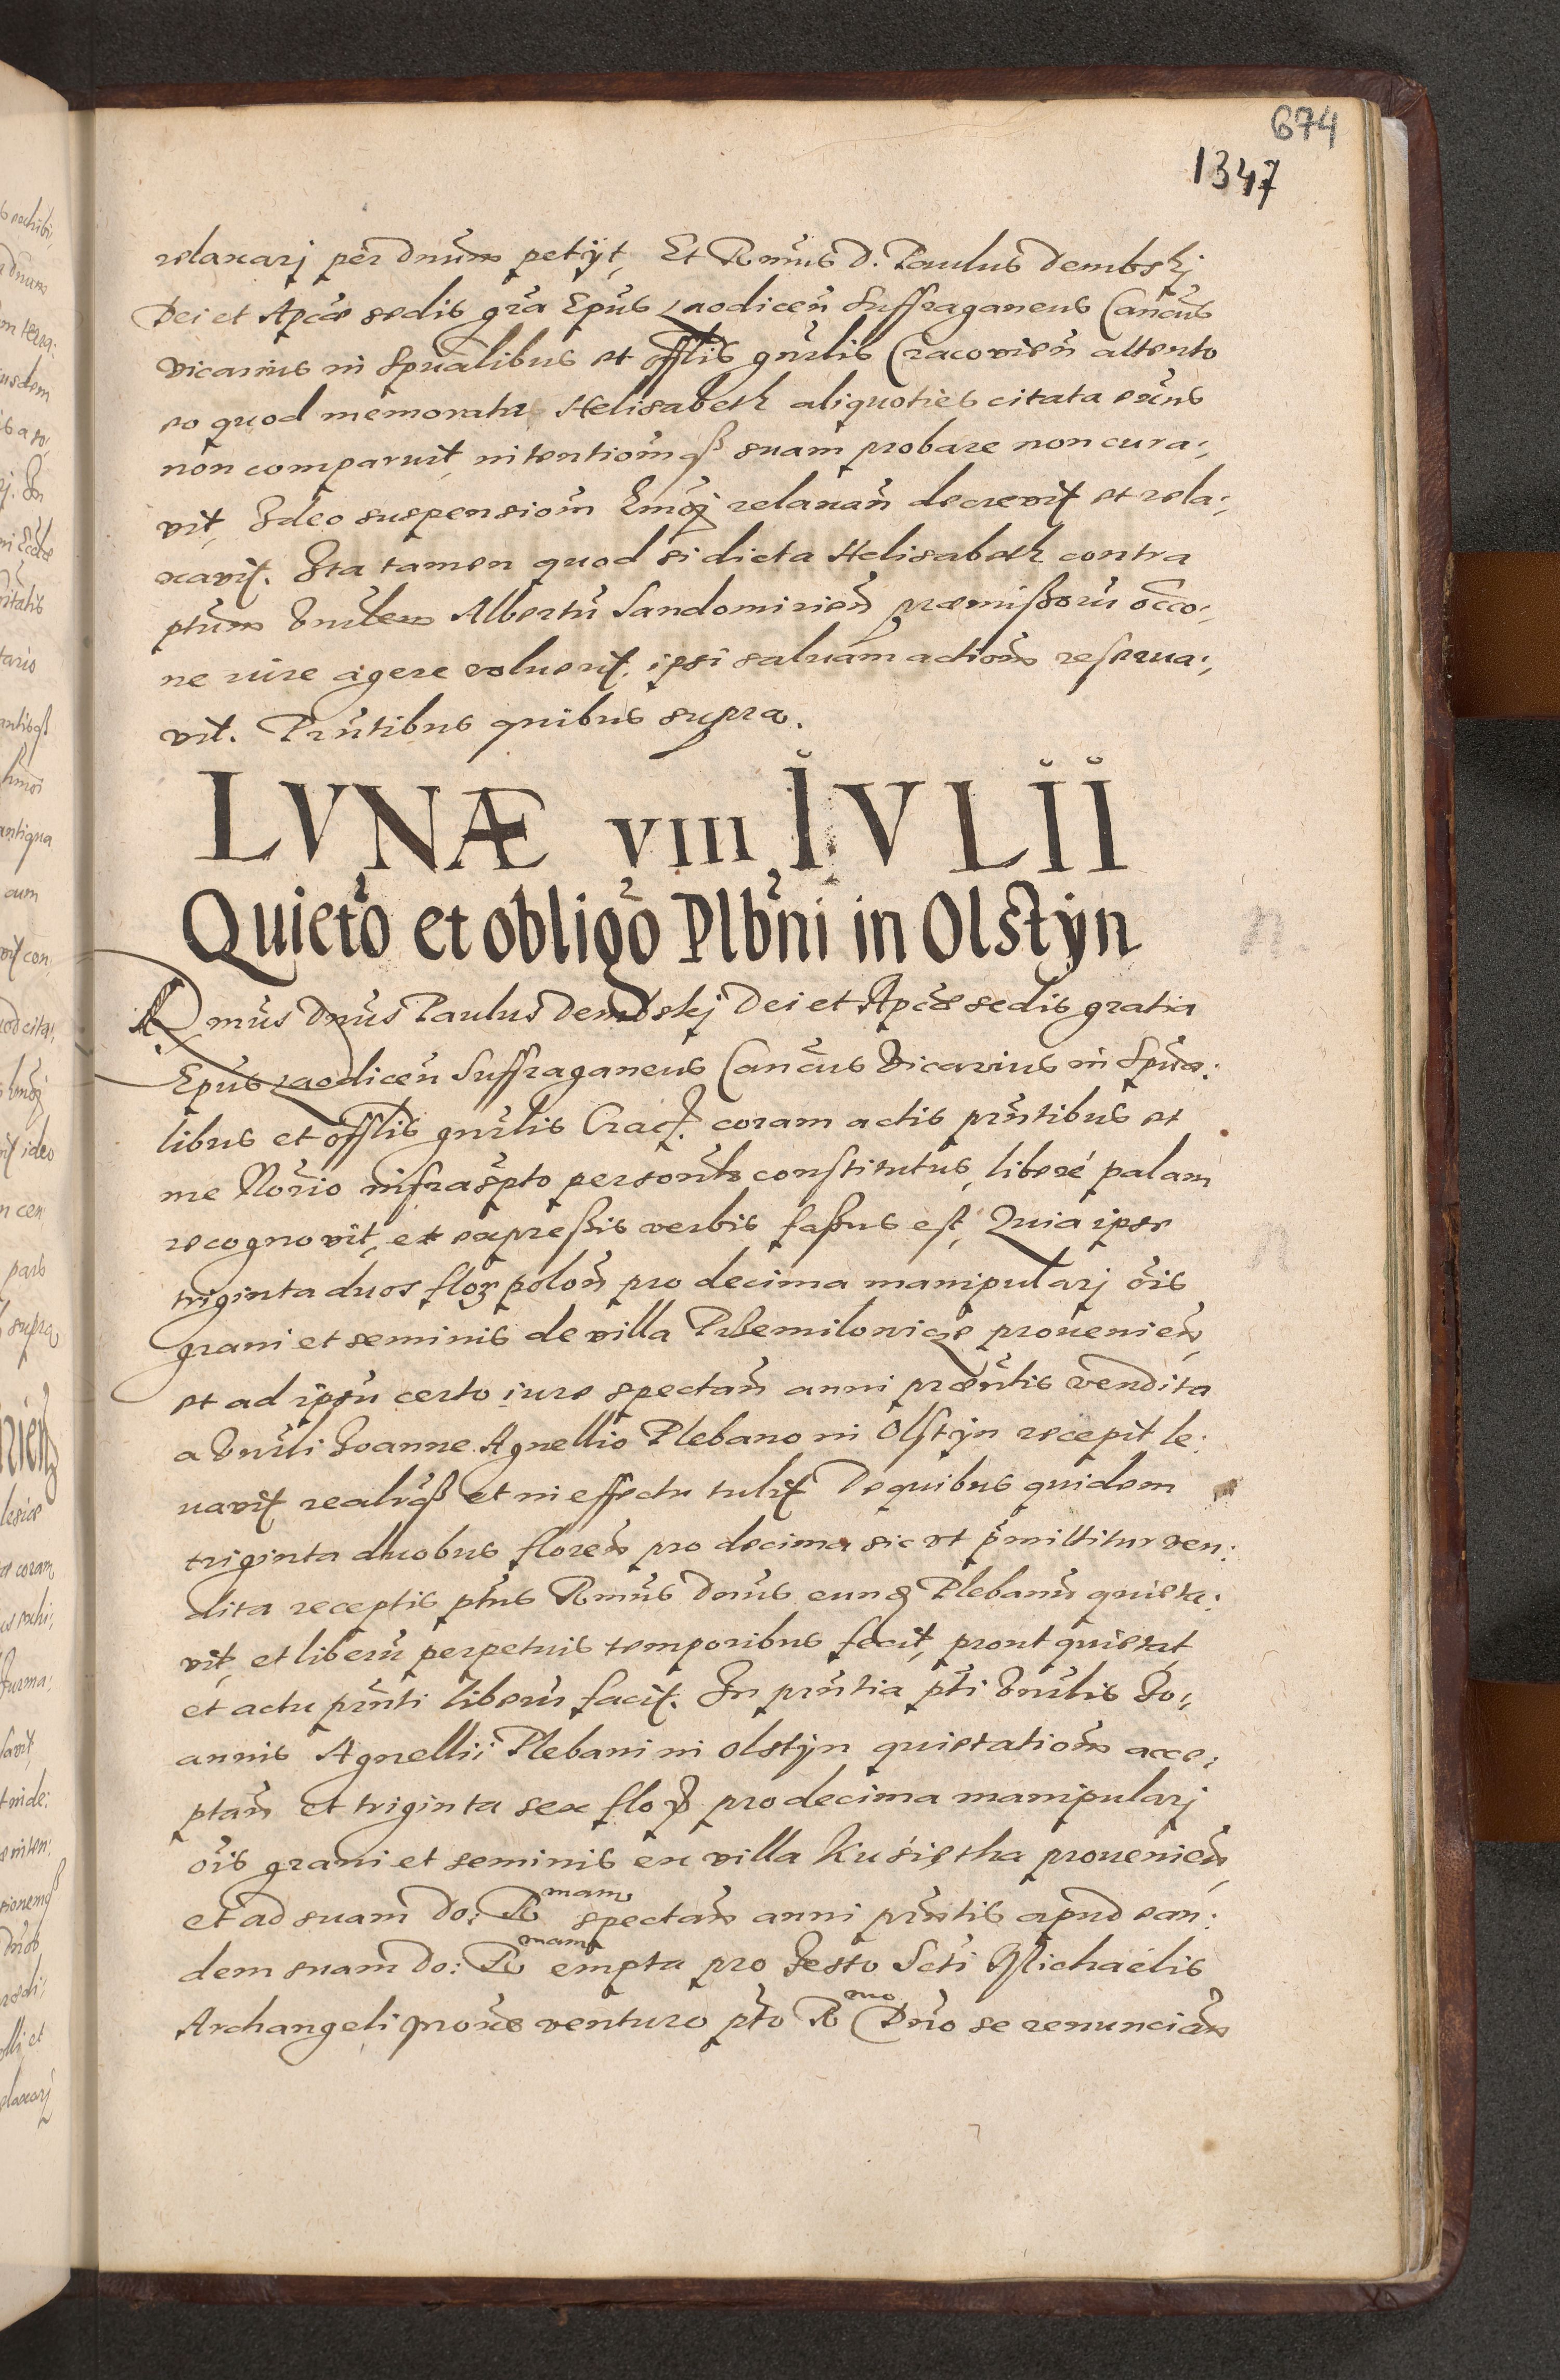 674
1347
relaxarj per dnum petÿt, Et Rmus D. Paulus Dembskj
Dei et Apcae sedis gra Epus Laodicen Suffraganeus Cancus
vicarius in spualibus et offlis gnrlis Cracovien attento
eo quod memorata Helisabeth aliquoties citata
non comparuit, intentionemqß suam probare non cura,
vit, Ideo suspensiom relaxan decrevit et rela,
xavit. Ita tamen quod si dicta Helisabeth contra
ptum Vnrlem Albertu Sandomirien praemißoru occo,
ne iure agere voluerit, ipsi saluam actiom reserua,
vit. Prntibus quibus supra.
LVNÆ VIII IVLII
Quieto et obligo Plbni in Olstÿn
Rmus Dnus Paulus Dembskj Dei et Apcae sedis gratia
Epus Laodicen Suffraganeus Cancus Vicarius in Spua:
libus et offlis gnrlis Crac. coram actis prntibus et
me Norio infrascpto personlr constitutus, liberé palam
recognovit, et expreßis verbis faßus est, Quia ipse
triginta duos flor polon pro decima manipularj ois
grani et seminis de villa Przemilowicze prouenien,
et ad ipsu certo iure spectan anni praentis vendita
a Vnrli Joanne Agnellio Plebano in Olstÿn recepit le:
uavit realrqß et in effectu tulit De quibus quidem
triginta duobus floren pro decima sic vt pmittitur ven:
dita receptis ptus Rmus Dnus eund Plebanu quieta:
vit, et liberu perpetuis temporibus fecit, prout quietat
et actu prnti liberu facit. In prntia pti Vnrlis Jo,
annis Agnellii Plebani in Olstÿn quietatiom acce:
ptan et triginta sex flor pro decima manipularj
ois grani et seminis ex villa Kusiętha prouenien,
et ad suam Do: Rmam spectan anni prntis apud ean:
dem suam Do: Rmam empta pro Festo Scti Michaëlis
Archangeli proxe venturo pto Rmo Dno se renuncian